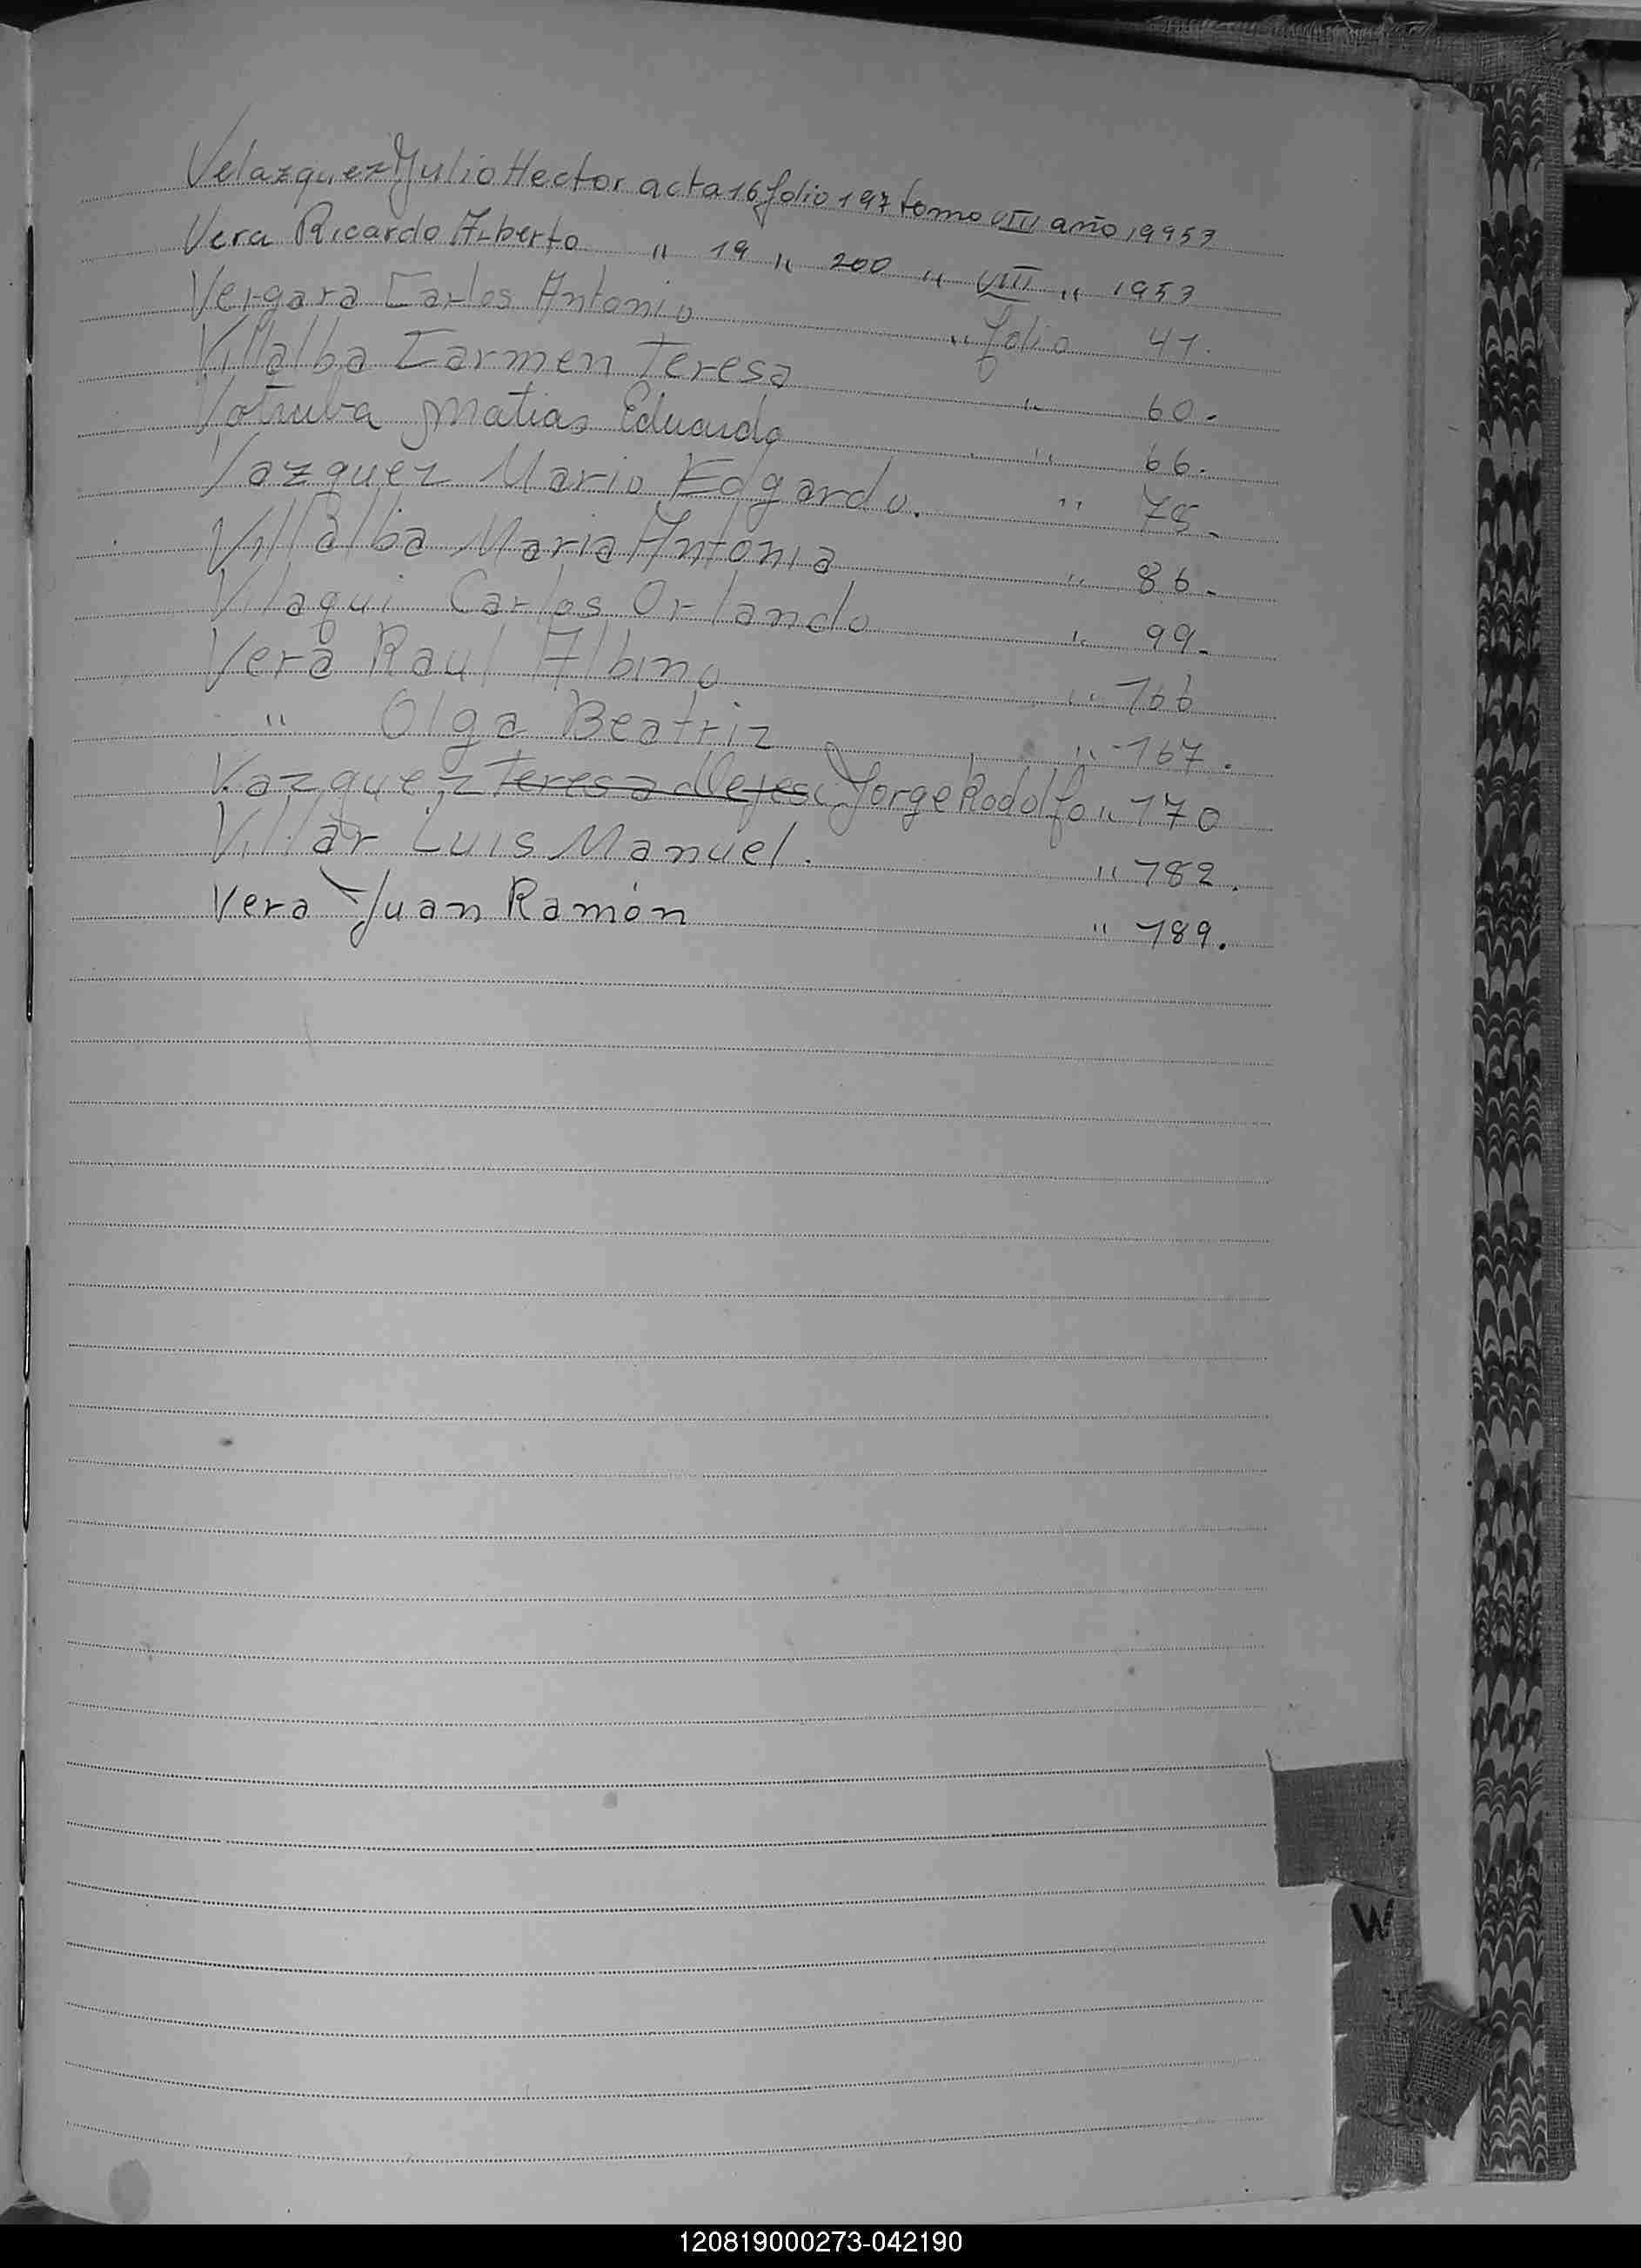 Velazquez Julio Hector acta 16 folio 197 tomo VIII año 19953
Vera Ricardo Alberto " 19 " 200 " VIII " 1953
Vergara Carlos Antonio " folio 41.
Villalba Carmen Teresa " 60.
Votruba Matias Eduardo " 66.
Vazquez Mario Edgardo. " 75.
Villalba Maria Antonia " 86.
Vilaqui Carlos Orlando " 99.
Vera Raul Albino " 166
" Olga Beatriz " 167.
Vazquez Teresa de Jorge Rodolfo " 170
Villar Luis Manuel. " 182.
Vera Juan Ramón " 189.
W
120819000273-042190